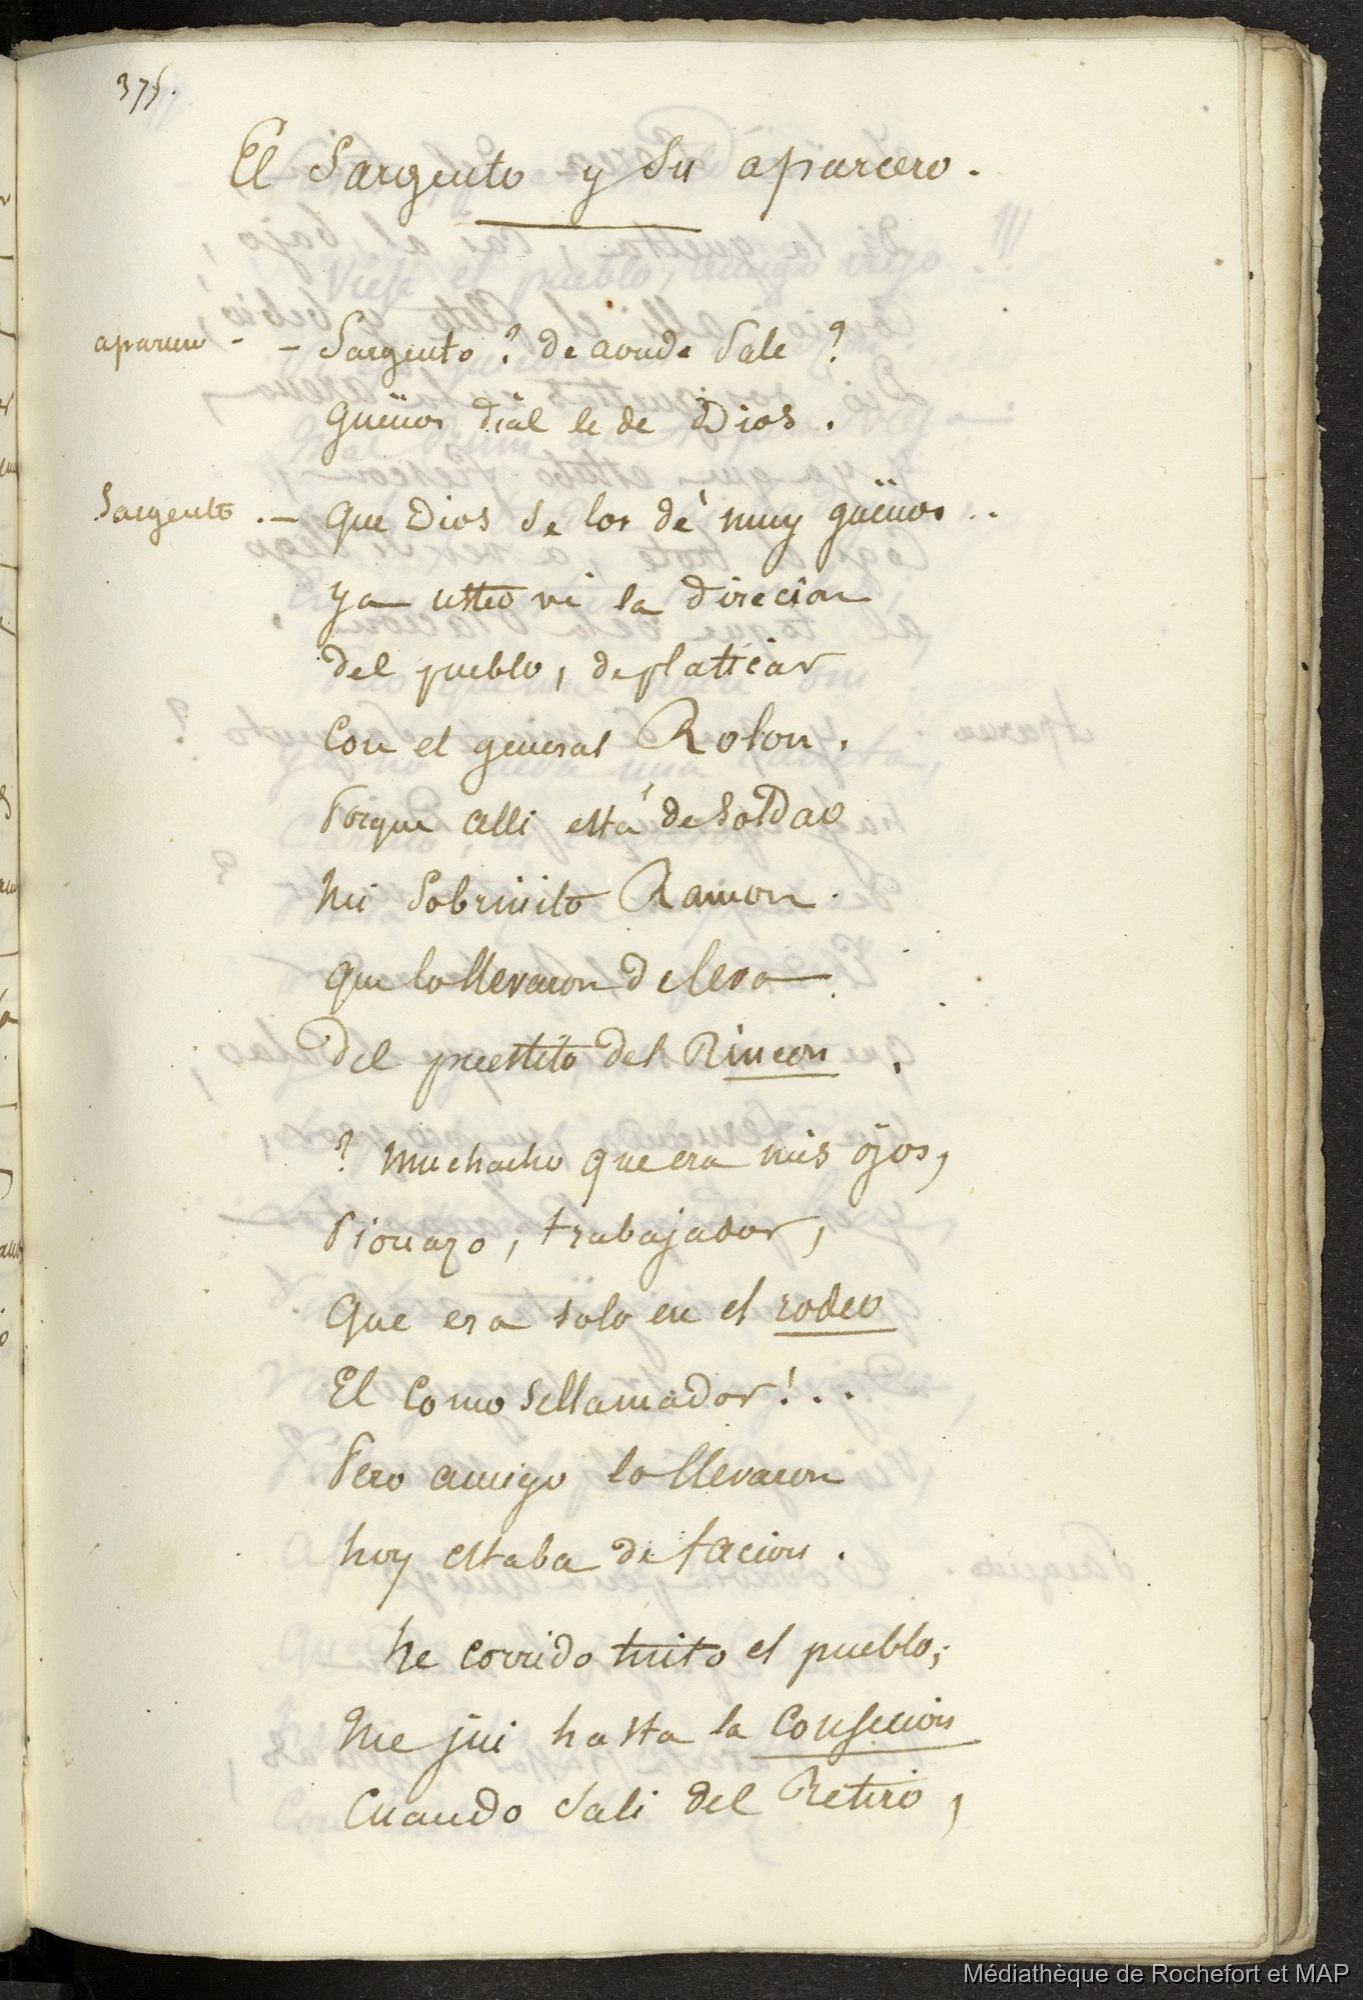 375.
El Sargento y Su aparcero.
aparcero - - Sargento ? de aonde Sale ?
Gueños dial le de Dios.
Sargento .- Que Dios se los dé muy güenos..
ya usteo vé la direcion
del pueblo, de platicar
Con el general Rolon.
Porque alli está de Soldao
Mi Sobrinito Ramon.
que lo llevaron de leva
Del puestito del Rincon.
? Muchacho que era mis ojos,
Pionazo, trabajador,
Que era solo en el rodeo
El Como Sellamador!..
Pero amigo lo llevaron
hoy estaba de facion.
he corrido tuito el pueblo;
Me jui hasta la Consecion
Cuando Sali del Retiro,
Médiathèque de Rochefort et MAP